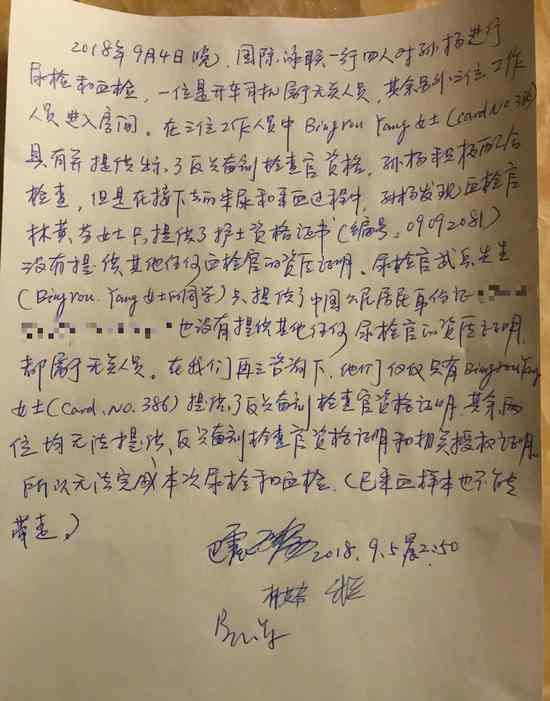 2018年9月4日晚，国际泳联一行四人对孙杨进行
尿检和血检，一位是开车司机属于无关人员，其余另外三位工作
人员进入房间。在三位工作人员中Bingrou Yang女士(card.No.386)
具有并提供出示了反兴奋剂检查官资格，孙杨积极配合
检查，但是在接下去的采尿和采血过程中，孙杨发现血检官
林黄 女士只提供了护士资格证书(编号：09092081)
没有提供其他任何血检官的资质证明。尿检官 先生
(Bingrou Yang女士的同学)只提供了中国公民居民身份证
也没有提供其他任何尿检官的资质证明，
都属于无关人员。在我们再三咨询下，他们仅仅只有Bingrou Yang
女士(Card.No.386)提供了反兴奋剂检查官资格证明，其余两
位均无法提供反兴奋剂检查官资格证明和相关授权证明，
所以无法完成本次尿检和血检。(已采血样本也不能
带走。)
2018.9.5晨2:50